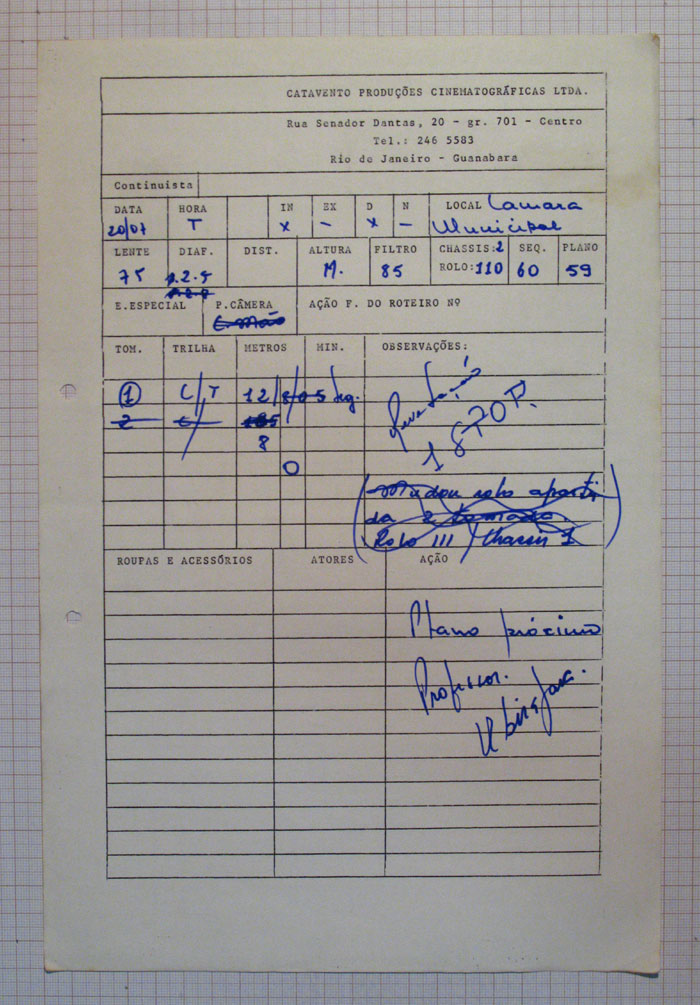 CATAVENTO PRODUÇÕES CINEMATOGRÁFICAS LTDA.
Rua Senador Dantas, 20 - gr. 701 - Centro
Tel.: 246 5583
Rio de Janeiro - Guanabara
Continuista
DATA HORA IN EX D N LOCAL Camara
20/07 T x - x - Municipal
LENTE DIAF. DIST. ALTURA FILTRO CHASSIS:2 SEQ. PLANO
75 2.5 M. 85 ROLO:110 60 59
E.ESPECIAL P.CÂMERA AÇÃO F. DO ROTEIRO Nº
C. mão
TOM. TRILHA METROS MIN. OBSERVAÇÕES:
1 C/T 12/8/05 seg.
2
8
1870R
O
(Mudou rolo aparti
da 2 tomada.
Rolo III / Chassis 1)
ROUPAS E ACESSÓRIOS ATORES AÇÃO
Plano próximo
Professor.
Ubirajara.